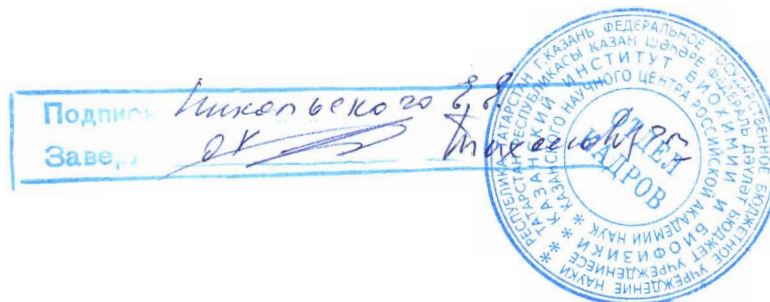 Подпись Никольского Е.Е.
Завер
РЕСПУБЛИКА ТАТАРСТАН Г.КАЗАНЬ ФЕДЕРАЛЬНОЕ ГОСУДАРСТВЕННОЕ БЮДЖЕТНОЕ УЧРЕЖДЕНИЕ НАУКИ
ТАТАРСТАН РЕСПУБЛИКАСЫ КАЗАН ШӘҺӘРЕ ФЕДЕРАЛЬ ДӘҮЛӘТ БЮДЖЕТ УЧРЕЖДЕНИЕСЕ
КАЗАНСКИЙ ИНСТИТУТ БИОХИМИИ И БИОФИЗИКИ
КАЗАНСКОГО НАУЧНОГО ЦЕНТРА РОССИЙСКОЙ АКАДЕМИИ НАУК
ОТДЕЛ
КАДРОВ